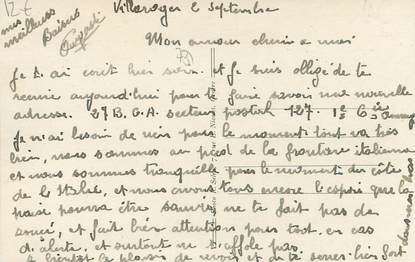 mes
meilleurs
Baisers
Villaroger le Septembre
Mon amour cherie a moi
Je t. ai ecrit hier soir et je suis obligé de te
recrire aujourd'hui pour te faire savoir ma nouvelle
adresse. 27 B.C.A. secteur postal 127. 1e Cie
Je n'ai besoin de rien pour le moment tout va très
bien, nous sommes au pied de la frontiere italienne
et nous sommes tranquille pour le moment du côté
de l'Italie, et nous avons tous encore l'espoir que la
paix pourra être sauvée ne te fait pas de
souci, et fait bien attention pour toi en cas
d'alerte, et surtout ne t'affole pas.
a bientôt le plaisir de revoir et de te serrer bien fort
dans mes bras